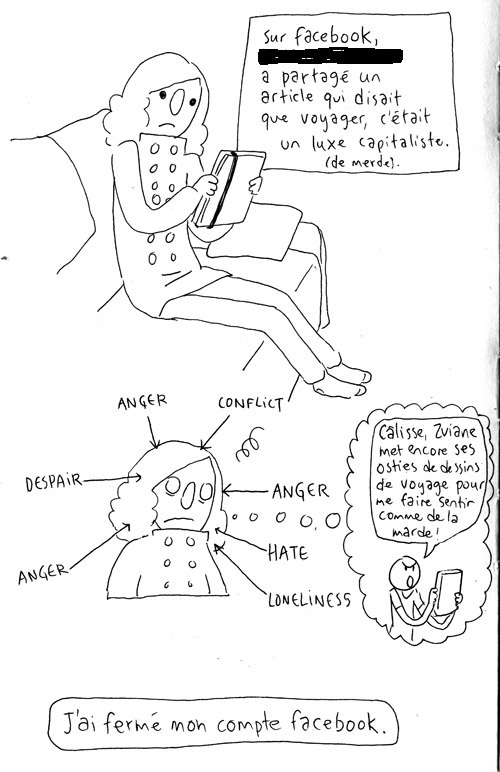 sur facebook,
a partagé un
article qui disait
que voyager, c'était
un luxe capitaliste.
(de merde).
ANGER
CONFLICT
DESPAIR
ANGER
ANGER
HATE
LONELINESS
Câlisse, Zviane
met encore ses
osties de dessins
de voyage pour
me faire sentir
comme de la
marde!
J'ai fermé mon compte facebook.